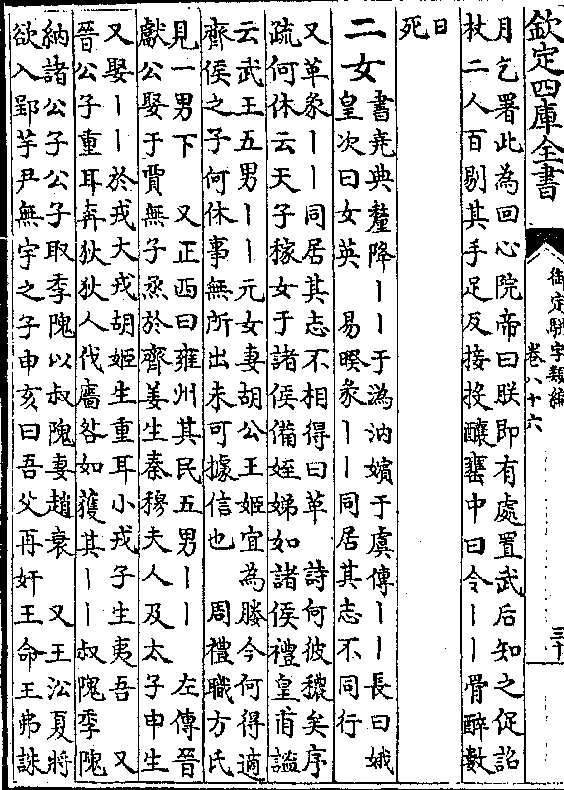 欽定四庫全書
御定駢字類編
卷八十六
三十
月乞署此為回心院帝曰朕即有處置武后知之促詔
杖二人百剔其手足反接投釀甕中曰令丨丨骨醉數
日
死
二女
書堯典釐降丨丨于溈汭嬪于虞傳丨丨長曰娥
皇次曰女英 易睽象丨丨同居其志不同行
又革象丨丨同居其志不相得曰革 詩何彼穠矣序
疏何休云天子稼女于諸侯備姪娣如諸侯禮皇甫謐
云武王五男丨丨元女妻胡公王姬宜為媵今何得適
齊侯之子何休事無所出未可據信也 周禮職方氏
見一男下 又正西曰雍州其民五男丨丨 左傳晉
獻公娶于賈無子烝於齊姜生秦穆夫人及太子申生
又娶丨丨於戎大戎胡姬生重耳小戎子生夷吾 又
晉公子重耳奔狄狄人伐廧咎如獲其丨丨叔隗季隗
納諸公子公子取季隗以叔隗妻趙衰 又王沿夏將
欲入鄢芋尹無宇之子申亥曰吾父再奸王命王弗誅